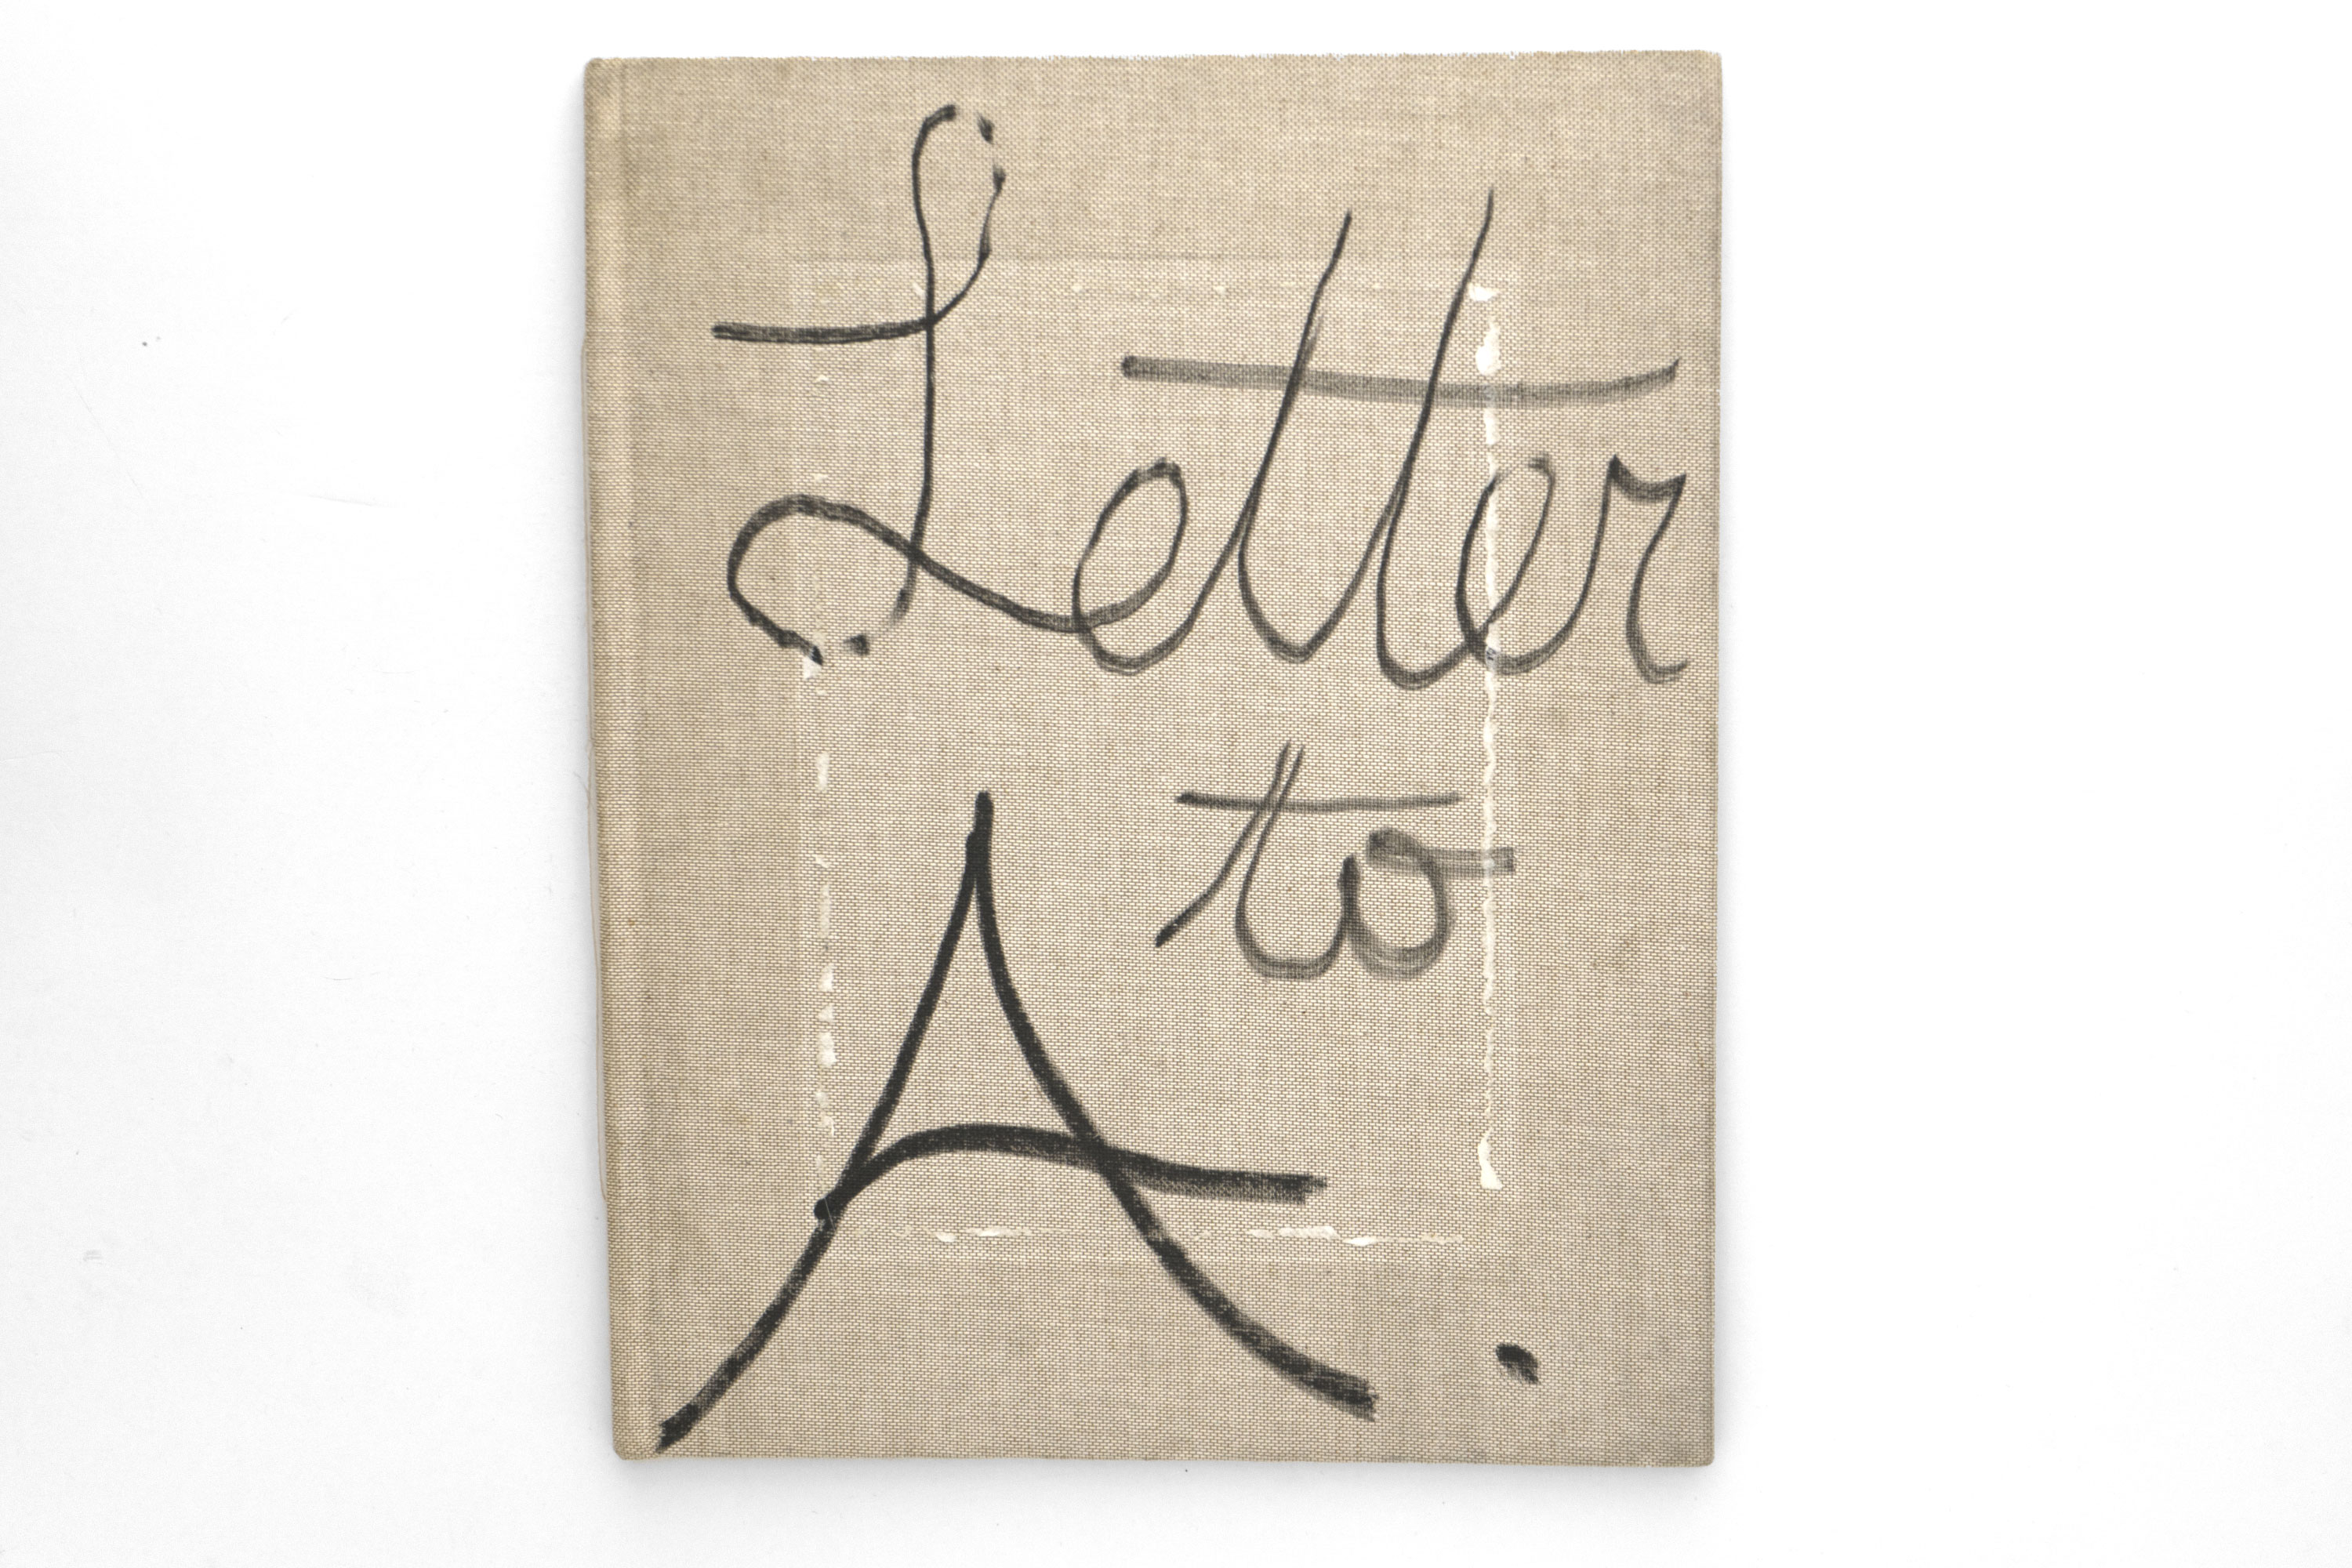 Letter
to
A.